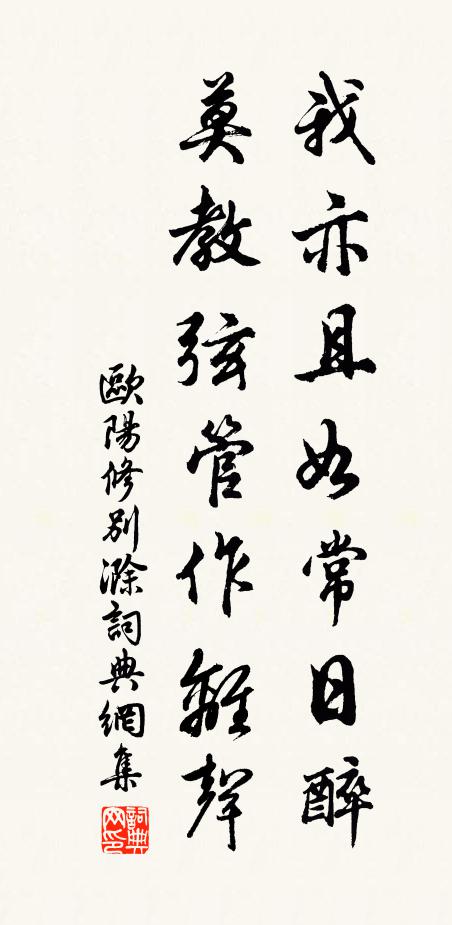 我亦且如常日醉
莫教弦管作離聲
歐陽修別滁詞典網集
詞典网印